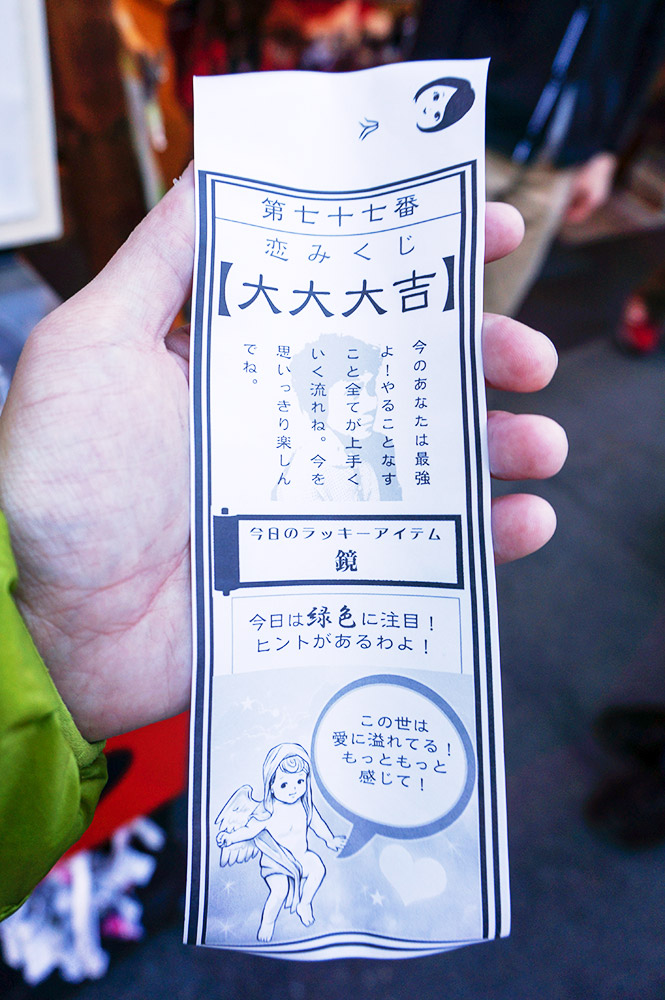 第七十七番
恋みくじ
【大大大吉】
今のあなたは最強
よ！やることなす
こと全てが上手く
いく流れね。今を
思いっきり楽しん
でね。
今日のラッキーアイテム
鏡
今日は緑色に注目！
ヒントがあるわよ！
この世は
愛に溢れてる！
もっともっと
感じて！